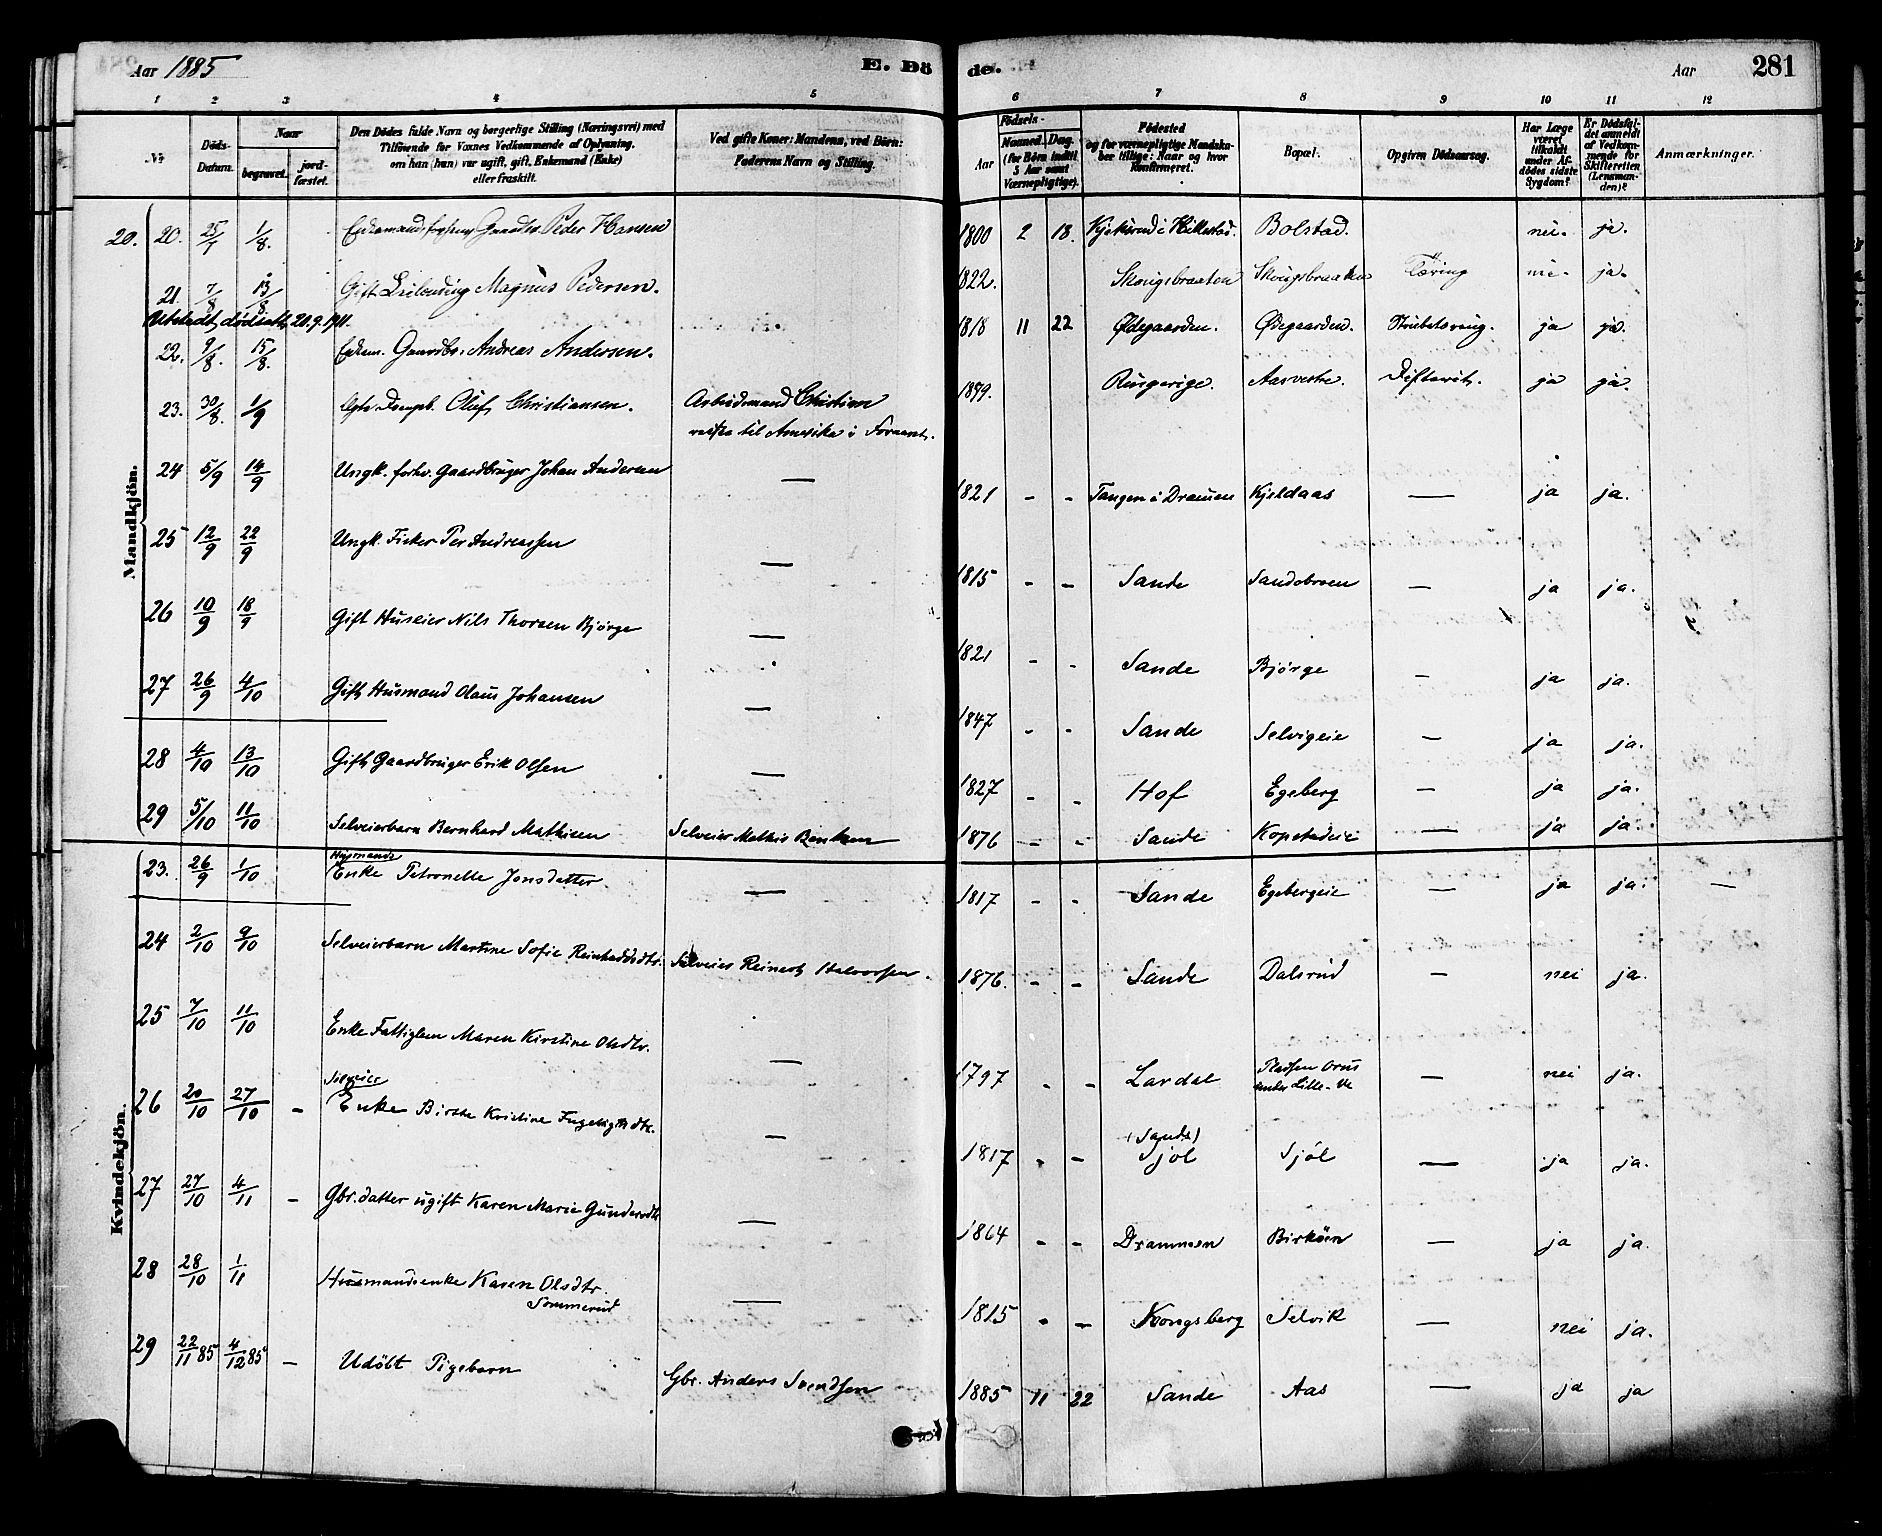 Aar 1885 E. Dö de. Aar 281
1 2 3 4 5 6 7 8 9 10 11 12
Nr. Döds-Datum. Naar begravet. jordfæstet. Den Dödes fulde Navn og borgerlige Stilling (Næringsvei) med Tilföiende for Voxnes Vedkommende af Oplysning, om han (hun) var ugift, gift, Enkemand (Enke) eller fraskilt. Ved gifte Koner: Mandens, ved Börn: Faderens Navn og Stilling. Födsels- Aar Maaned. Dag. (for Börn indtil 5 Aar samt Værnepligtige). Födested og for værnepligtige Mandskaber tillige: Naar og hvor Konfirmeret. Bopæl. Opgiven Dödsaarsag. Har Læge været tilkaldt under Afdödes sidste Sygdom? Er Dödsfaldet anmeldt af Vedkommende for Skifteretten (Lensmanden)? Anmærkninger.
Mandkjön.
20. 20. 25/7 1/8. Enkemand Gaardbr. Peder Hansen 1800 2 18. i Hillestad. Bolstad. nei. ja.
21. 7/8 13/8 Gift Leilending Magnus Pedersen. 1822. Skougsbraaten Skougsbraaten Tæring nei. ja.
Utstedt dødsatt. 20.9.1911.
22. 9/8. 15/8. Enkem. Gaardbr. Andreas Andersen. 1818 11 22 Ødegaarden. Ødegaarden. Strubehoste. ja ja.
23. 30/8. 1/9 Oluf Christiansen. Arbeidsmand Christian 1879. Ringerige. Aasvestre. Difterit. ja ja.
reiste til Amerika i Foraaret.
24 5/9 14/9 Ungk. forhv. Gaardbruger Johan Andersen — 1821 - - Tangen i Dramen Kjeldaas — ja ja.
25 12/9 22/9 Ungk. Fisker Per Andreassen — 1815 - - Sande Sandebroen — ja ja.
26 10/9 18/9 Gift Huseier Nils Thorsen Bjørge — 1821 - - Sande Bjørge — ja ja.
27 26/9 4/10 Gift Husmand Olaus Johansen — 1847 - - Sande Selvigeie — ja ja.
28 4/10 13/10 Gift Gaardbruger Erik Olsen — 1827 - - Hof Egeberg — ja ja.
29 5/10 11/10 Selveierbarn Bernhard Mathisen Selveier Mathis 1876 - - Sande Kopstadeie — ja ja.
Kvindekjön.
23. 26/9 1/10 Husmands Enke Petronelle Jonsdatter. — 1817 - - Sande Egebergeie — ja ja. —
24 2/10 9/10 Selveierbarn Martine Sofie Reinhardsdtr. Selveier Reinert Halvorsen. 1876. - - Sande Dalsrud — nei ja.
25 7/10 11/10 Enke Fattiglem Maren Kirstine Olsdtr. — 1797 - - Lardal Pladsen Orus under Lille-Ve — nei ja.
26 20/10 27/10 - Selveier Enke Birthe Kristine — 1817 - - (Sande) Sjøl Sjøl — ja ja.
27 27/10 4/11 - Gbr. datter ugift Karen Marie Gundersdtr — 1864 - - Drammen — ja ja.
28 28/10 1/11 Husmandsenke Karen Olsdtr. — 1815 - - Kongsberg Selvik — nei ja.
Sommerud
29 22/11 85 4/12 85 - Udöbt Pigebarn Gbr. Anders Svendsen 1885 11 22 Sande Aas — ja ja